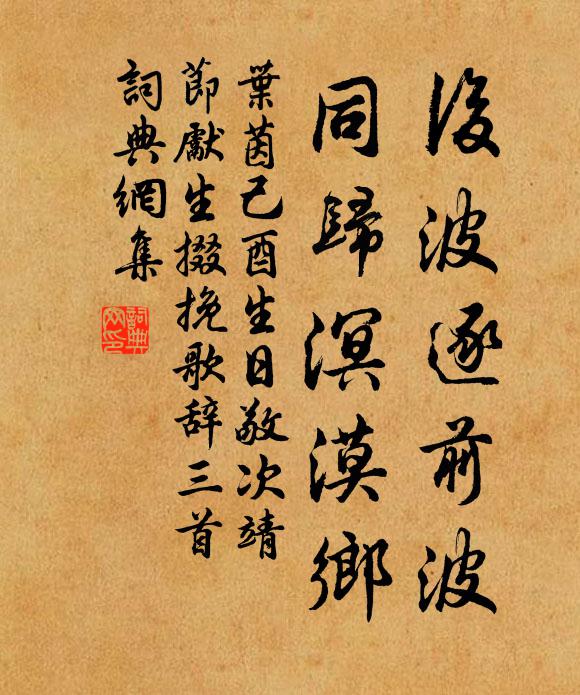 後波逐前波
同歸溟漠鄉
葉茵己酉生日敬次靖
節獻生掇挽歌辞三首
詞典網集
詞典網印